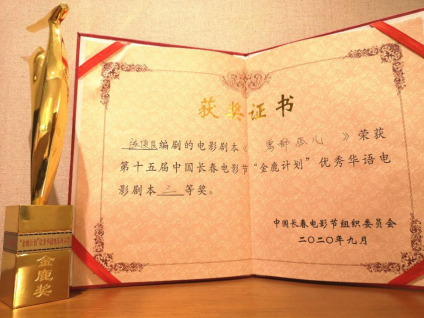 获奖证书
编剧的电影剧本《 》荣获
第十五届中国长春电影节"金鹿计划"优秀华语电
影剧本三等奖。
中国长春电影节组织委员会
二〇二〇年九月
金鹿奖